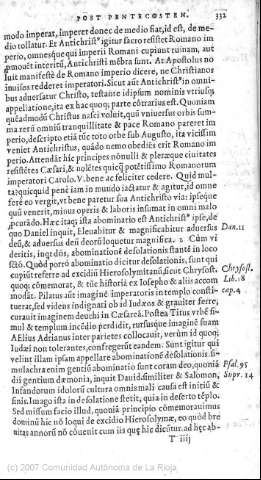 POST PENTECOSTEN. 332
modo imperat, imperet donec de medio fiat, id est, de me-
dio tollatur. Et Antichristꝰ igitur furo resistet Romano im
perio, omnesque qui imperii Romani cupiunt ruinam, aut
promouēt interitū, Antichristi mēbra sunt. At Apostolus no
luit manifestè de Romano imperio dicere, ne Christianos
inuisos redderet imperatori. Sicut aūt Antichristꝰ in omni-
bus aduersatur Christo, testante id ipsum nominis vtriusq;
appellatione, ita ex hac quoq; parte cōtrarius est. Quoniam
quēadmodū Christus nasci voluit, quū vniuersus orbis sum-
ma rerū omniū tranquillitate & pace Romano pareret im
perio, descripto etiā tūc toto orbe sub Augusto, ita vicissim
veniet Antichristus, quādo nemo obediēs erit Romano im
perio. Attendāt hic principes nōnulli & pleræque ciuitates
resistētes Cæsari, & nolētes quicq̄ potētissimo Romanorum
imperatori Carolo. V. bene ac feliciter cedere. Quid mul-
ta? quicquid penè iam in mundo iactatur & agitur, id omne
ferè eo vergit, vt bene paretur sua Antichristo via: ipseque
quū venerit, minus operis & laboris insumat in omni malo
procurādo. Hæc itaq; ista abominatio est Antichristꝰ ipse, de
quo Daniel inquit, Eleuabitur & magnificabitur aduersus Dan.11
deū, & aduersus deū deorū loquetur magnifica. 2 Cùm vi
deritis, inquiēs, abominationē desolationis stantē in loco
sctō. Quòd porrò abominatio dicitur desolationis, sunt qui
cupiūt referre ad excidiū Hierosolymitanū, sicut Chrysost. Chrysost.
quoq; cōmemorat, & tūc historia ex Iosepho & aliis accom Lib.18
modat. Pilatus aūt imaginē imperatoris in templo consti- cap.4
tuerat, sed videns indignari ob id Iudæos & grauiter ferre,
curauit imaginem deuehi in Cæsareā. Postea Titus vrbē si-
mul & templum incēdio perdidit, rursusque imaginē suam
Aelius Adrianus inter parietes collocauit, verùm id quoq;
Iudæi non tolerantes, confregerūt eandem. Sunt igitur qui
velint illam ipsam appellare abominationē desolationis. Si-
mulachra enim gentiū abominatio sunt coram deo, quoniā Psal.95
dii gentium dæmonia, inquit Dauid. similiter & Salomon, Supr.14
Infandorum idolorū cultura omnis mali causa est initiū &
finis. Imago ista in desolatione stetit, quia in deserto tēplo.
Sed missum facio illud, quoniā principio cōmemorauimus
dominū hîc nō loqui de excidio Hierosolymæ, eo quòd bre
uitas annorū nō cōuenit cum iis quę hîc dicūtur. ad hęc ab-
T iiij
(c) 2007 Comunidad Autónoma de La Rioja